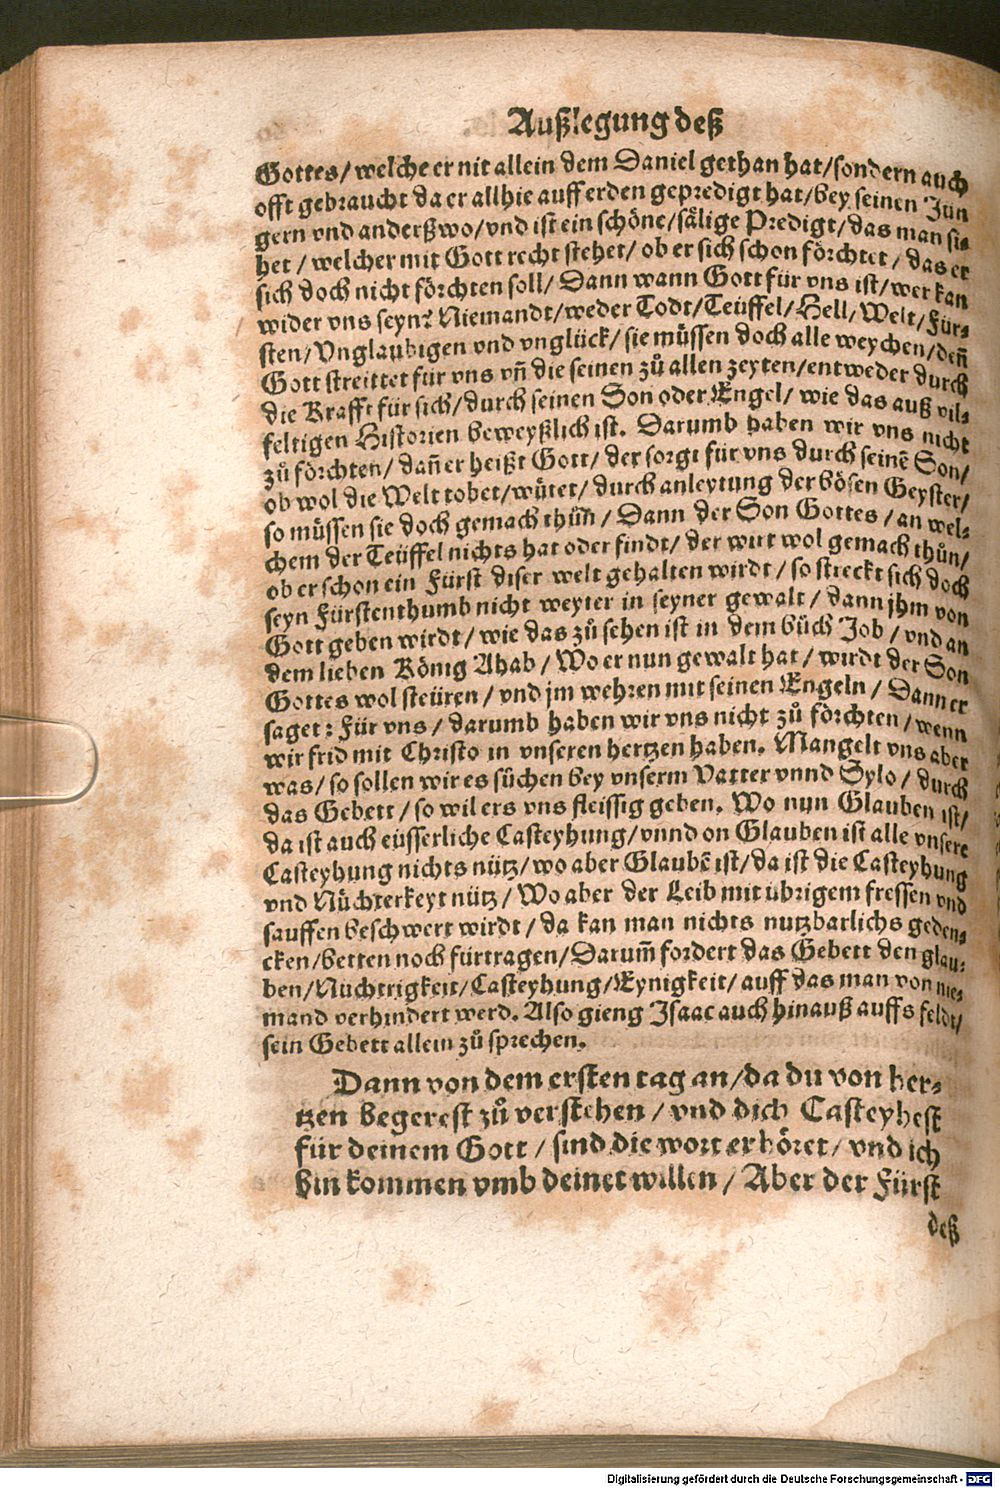 Außlegung deß
Gottes/ welche er nit allein dem Daniel gethan hat/ sondern auch
offt gebraucht da er allhie auff erden gepredigt hat/ bey seinen Jün
gern vnd anderßwo/ vnd ist ein schöne/ sälige Predigt/ das man si-
het/ welcher mit Gott recht stehet/ ob er sich schon förchtet/ das er
sich doch nicht förchten soll/ Dann wann Gott für vns ist/ wer kan
wider vns seyn? Niemandt/ weder Todt/ Teüffel/ Hell/ Welt/ Für-
sten/ Vnglaubigen vnd vnglück/ sie müssen doch alle weychen/ deñ
Gott streittet für vns vñ die seinen zů allen zeyten/ entweder durch
die Krafft für sich/ durch seinen Son oder Engel/ wie das auß vil-
feltigen Historien beweyßlich ist. Darumb haben wir vns nicht
zů förchten/ dañ er heißt Gott/ der sorgt für vns durch seinē Son/
ob wol die Welt tobet/ wütet/ durch anleytung der bösen Geyster/
so müssen sie doch gemach thůn/ Dann der Son Gottes/ an wel-
chem der Teüffel nichts hat oder findt/ der wirt wol gemach thůn/
ob er schon ein Fürst diser welt gehalten wirdt/ so streckt sich doch
seyn Fürstenthumb nicht weyter in seyner gewalt/ dann jhm von
Gott geben wirdt/ wie das zů sehen ist in dem bůch Job/ vnd an
dem lieben König Ahab/ Wo er nun gewalt hat/ wirdt der Son
Gottes wol steüren/ vnd jm wehren mit seinen Engeln/ Dann er
saget: Für vns/ darumb haben wir vns nicht zů förchten/ wenn
wir frid mit Christo in vnseren hertzen haben. Mangelt vns aber
was/ so sollen wir es süchen bey vnserm Vatter vnnd Sylo/ durch
das Gebett/ so wil ers vns fleissig geben. Wo nun Glauben ist/
da ist auch eüsserliche Casteyhung/ vnnd on Glauben ist alle vnsere
Casteyhung nichts nütz/ wo aber Glaubē ist/ da ist die Casteyhung
vnd Nüchterkeyt nütz/ Wo aber der Leib mit übrigem fressen vnd
sauffen beschwert wirdt/ da kan man nichts nutzbarlichs geden-
cken/ betten noch fürtragen/ Darum̃ fordert das Gebett den glau-
ben/ Nüchtrigkeit/ Casteyhung/ Eynigkeit/ auff das man von nie-
mand verhindert werd. Also gieng Isaac auch hinauß auffs feldt/
sein Gebett allein zů sprechen.
Dann von dem ersten tag an/ da du von her-
tzen begerest zů verstehen/ vnd dich Casteyhest
für deinem Gott/ sind die wort erhöret/ vnd ich
bin kommen vmb deinet willen/ Aber der Fürst
deß
Digitalisierung gefördert durch die Deutsche Forschungsgemeinschaft - DFG